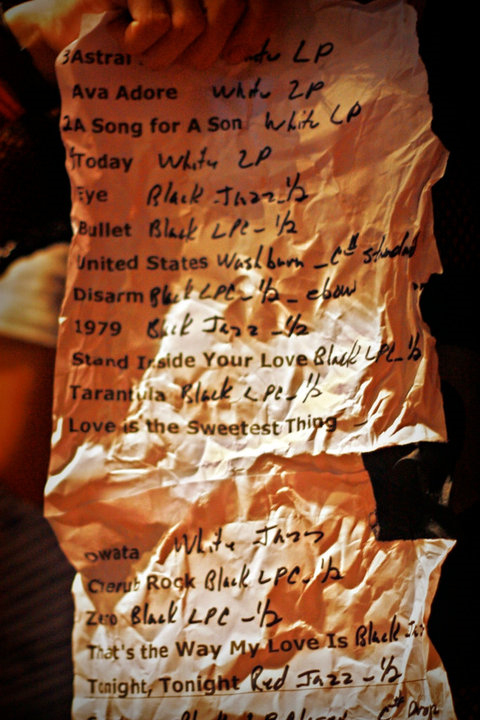 3Astral White LP
Ava Adore White LP
2A Song for A Son White LP
Today White LP
Eye Black Jazz - ½
Bullet Black LPC - ½
United States Washburn - C# standard
Disarm Black LPC - ½ - ebow
1979 Black Jazz - ½
Stand Inside Your Love Black LPC - ½
Tarantula Black LPC - ½
Love is the Sweetest Thing -
Owata White Jazz
Cherub Rock Black LPC - ½
Zero Black LPC - ½
That's the Way My Love Is Black Jazz
Tonight, Tonight Red Jazz - ½
Black C# Drop